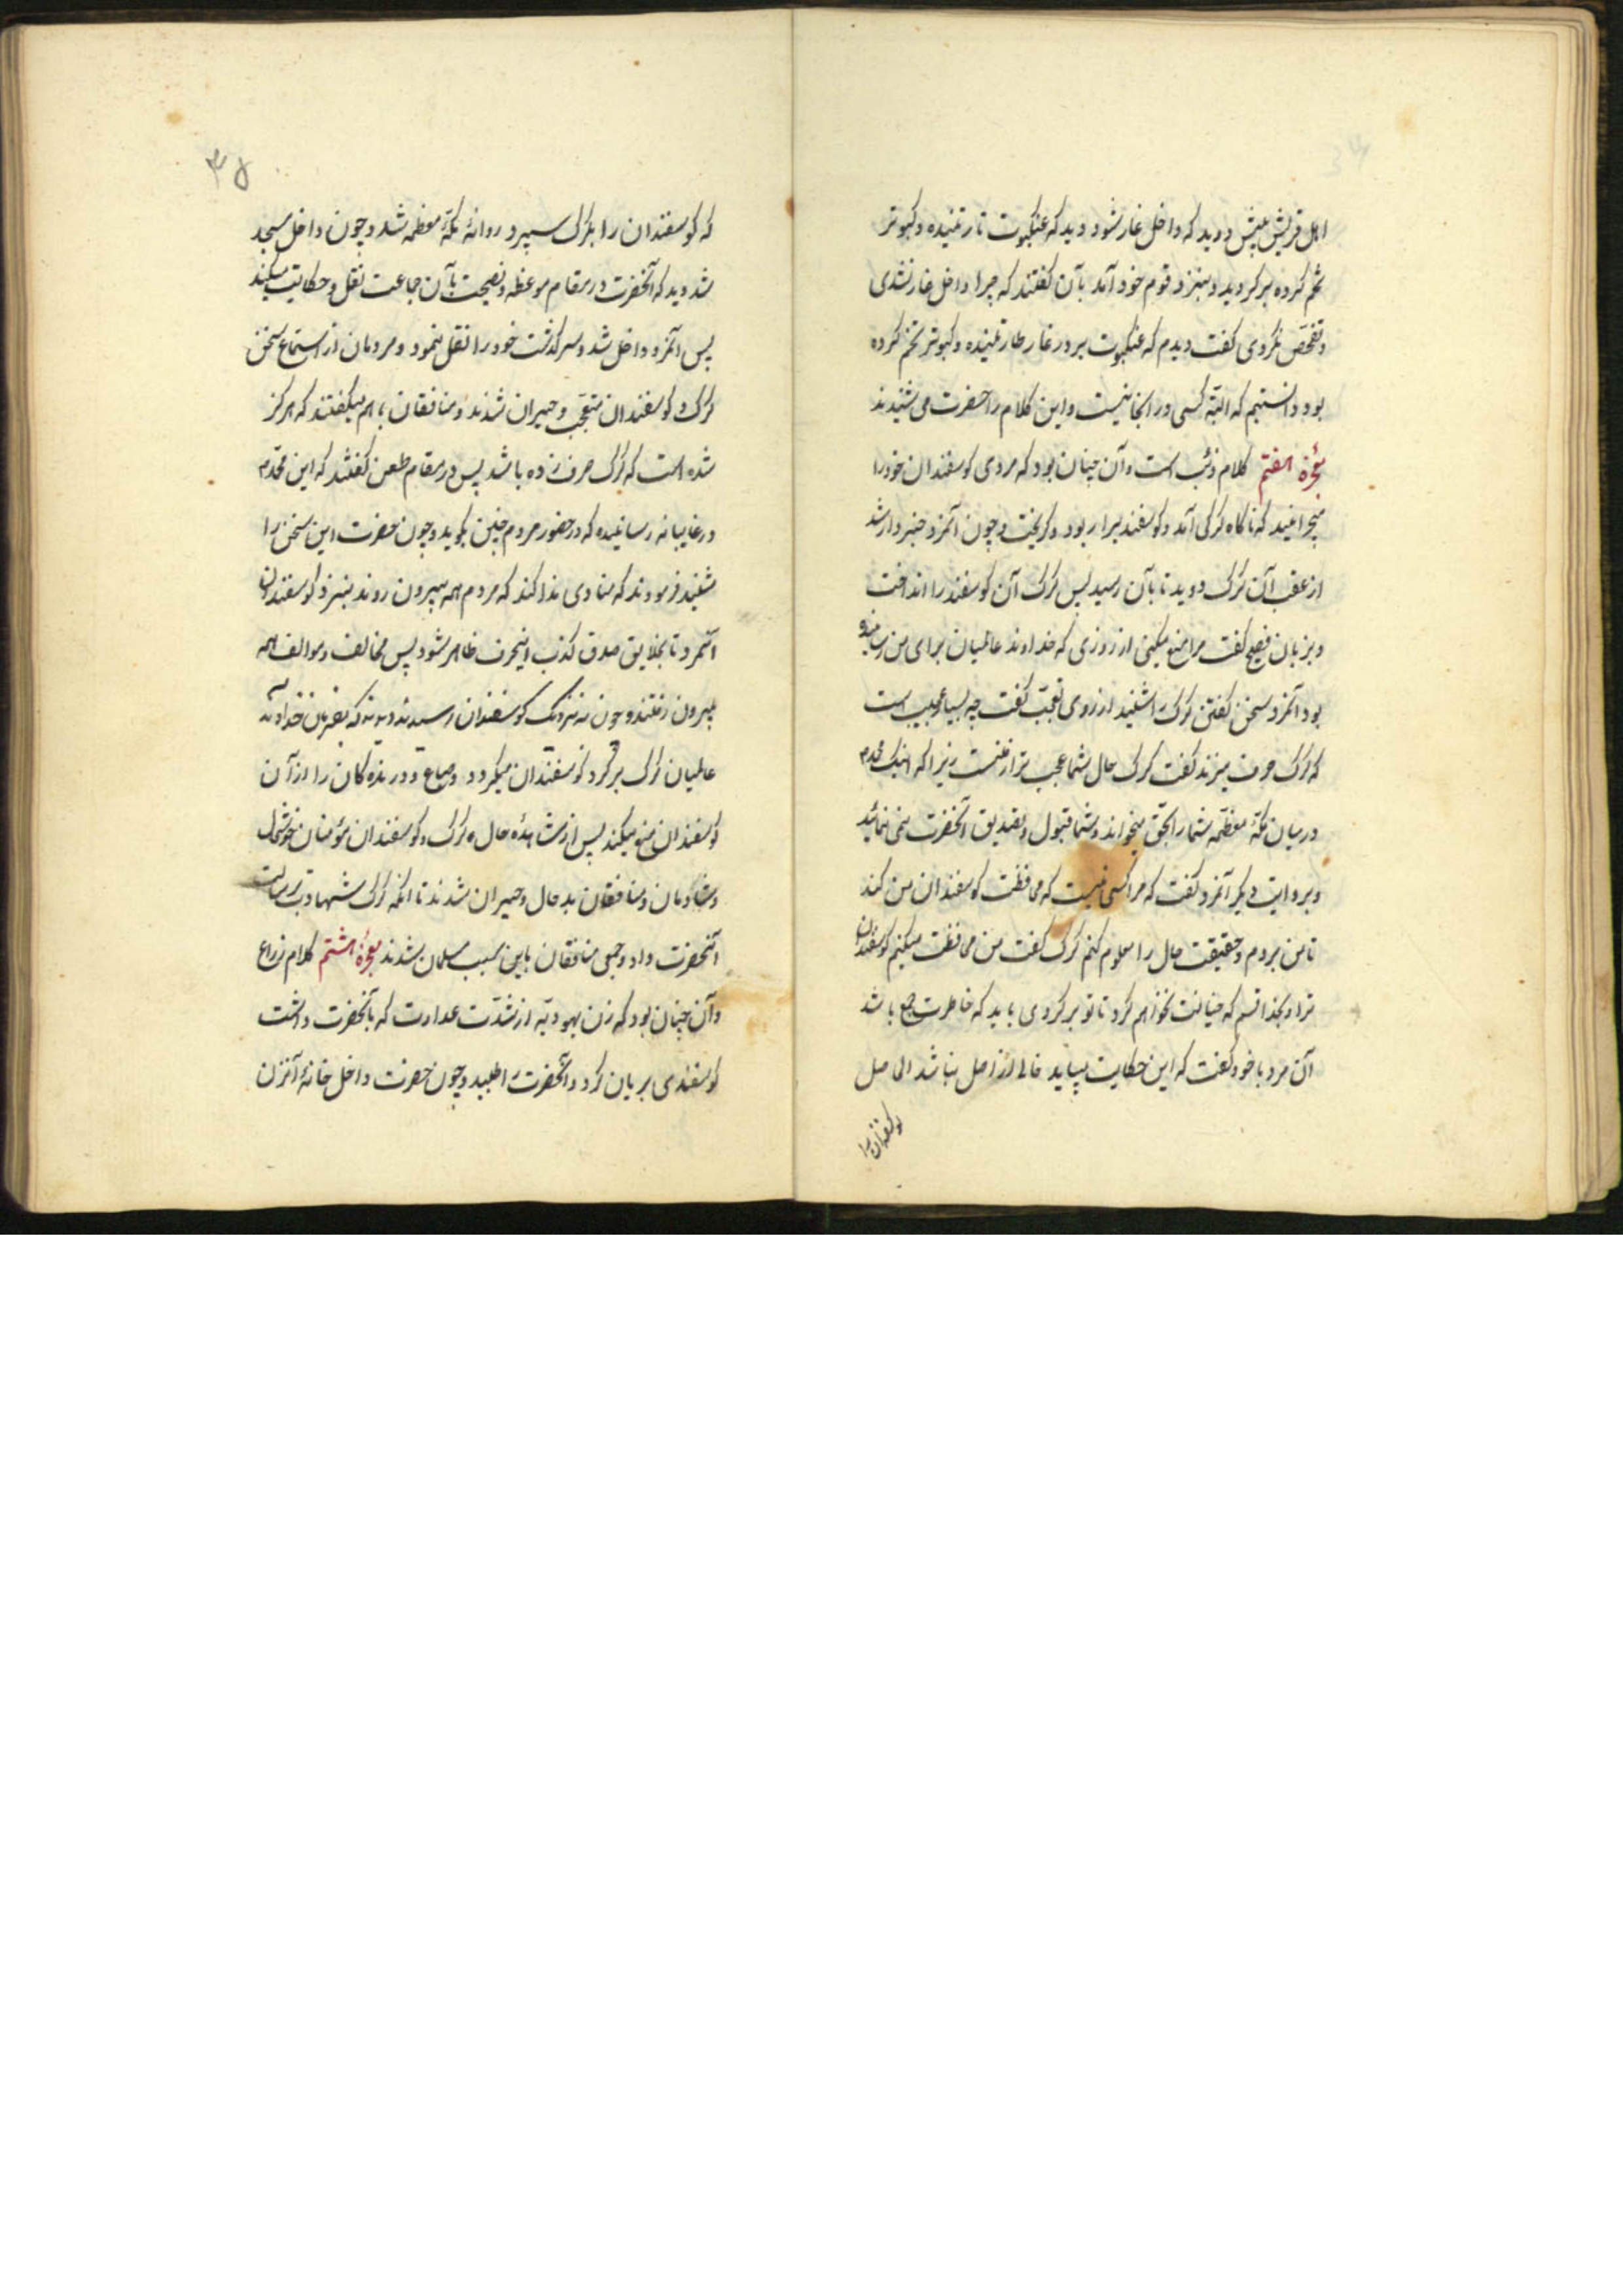 اهل قریش پیش دوید که داخل غار شود دید که عنکبوت تار تنیده و کبوتر
تخم کرده برگردید و بنزد قوم خود آمد بآن گفتند که چرا داخل غار نشدی
و تفحّص نکردی گفت دیدم که عنکبوت بر در غار تار تنیده و کبوتر تخم کرده
بود دانستیم که البتّه کسی در انجا نیست و این کلام را حضرت می شنیدند
معجزۀ هفتم کلام ذئب است و آن چنان بود که مردی کوسفندان خود را
میچرانید که ناکاه کرکی آمد و کوسفند برا ربود و کریخت و چون آنمرد خبردار شد
از عقب آن کرک دوید تا بآن رسید پس کرک آن کوسفند را انداخت
و بزبان فصیح گفت مرا منع میکنی از روزی که خداوند عالمیان برای من رسانیده
بود آنمرد سخن کفتن کرک را شنید از روی تعجّب گفت چه بسیار عجیب است
که کرک حرف میزند گفت کرک حال شما عجیب تر از منست زیرا که اینک محمّدم
در میان مکّۀ معظّمه شما را بحقّ میخواند و شما قبول و تصدیق آنحضرت نمی نمائید
و بروایت دیکر آنمرد گفت که مرا کسی نیست که محافظت کوسفندان من کند
تا من بروم و حقیقت حال را معلوم کنم کرک گفت من محافظت میکنم کوسفندان
ترا و بخدا قسم که خیانت نخواهم کرد تا تو برکردی باید که خاطرت جمع باشد
آن مرد با خود گفت که این حکایت میباید خالی از اصل نباشد الحاصل
کوسفندان را
۳۵
که کوسفندان را بکرک سپرد و روانۀ مکّۀ معظمه شد و چون داخل مسجد
شد دید که آنحضرت در مقام موعظه و نصیحت بآن جماعت نقل و حکایت میکند
پس آنمرد داخل شد و سرکذشت خود را نقل نمود و مردمان از استماع سخن
کرک و کوسفندان متعجّب و حیران شدند و منافقان باهم میکفتند که هرکز
شده است که کرک حرف زده باشد پس در مقام طعن کفتند که این محمّدم
در غایبانه رسانیده که در حضور مردم چنین بکوید و چون حضرت این سخن را
شنید فرمودند که منادی ندا کند که مردم همه بیرون روند بنزد کوسفندان
آنمرد تا بخلایق صدق کذب اینحرف ظاهر شود پس مخالف و موالف همه
بیرون رفتند و چون به نزدیک کوسفندان رسیدند دیدند که بفرمان خداوند
عالمیان کرک بر کرد کوسفندان میکردد و صباع و درنده کان را از آن
کوسفندان منع میکند پس از مشاهدۀ حال کرک و کوسفندان مؤمنان خوشحال
و شادمان و منافقان بدحال و حیران شدند تا انکه کرک شهادت برسالت
آنحضرت داد و جمعی منافقان باین سبب مسلمان شدند معجزۀ هشتم کلام زراع
و آن چنان بود که زن یهودیّه از شدّت عداوت که بآنحضرت داشت
کوسفندی بریان کرد و آنحضرت را طلبید و چون حضرت داخل خانۀ آنزن